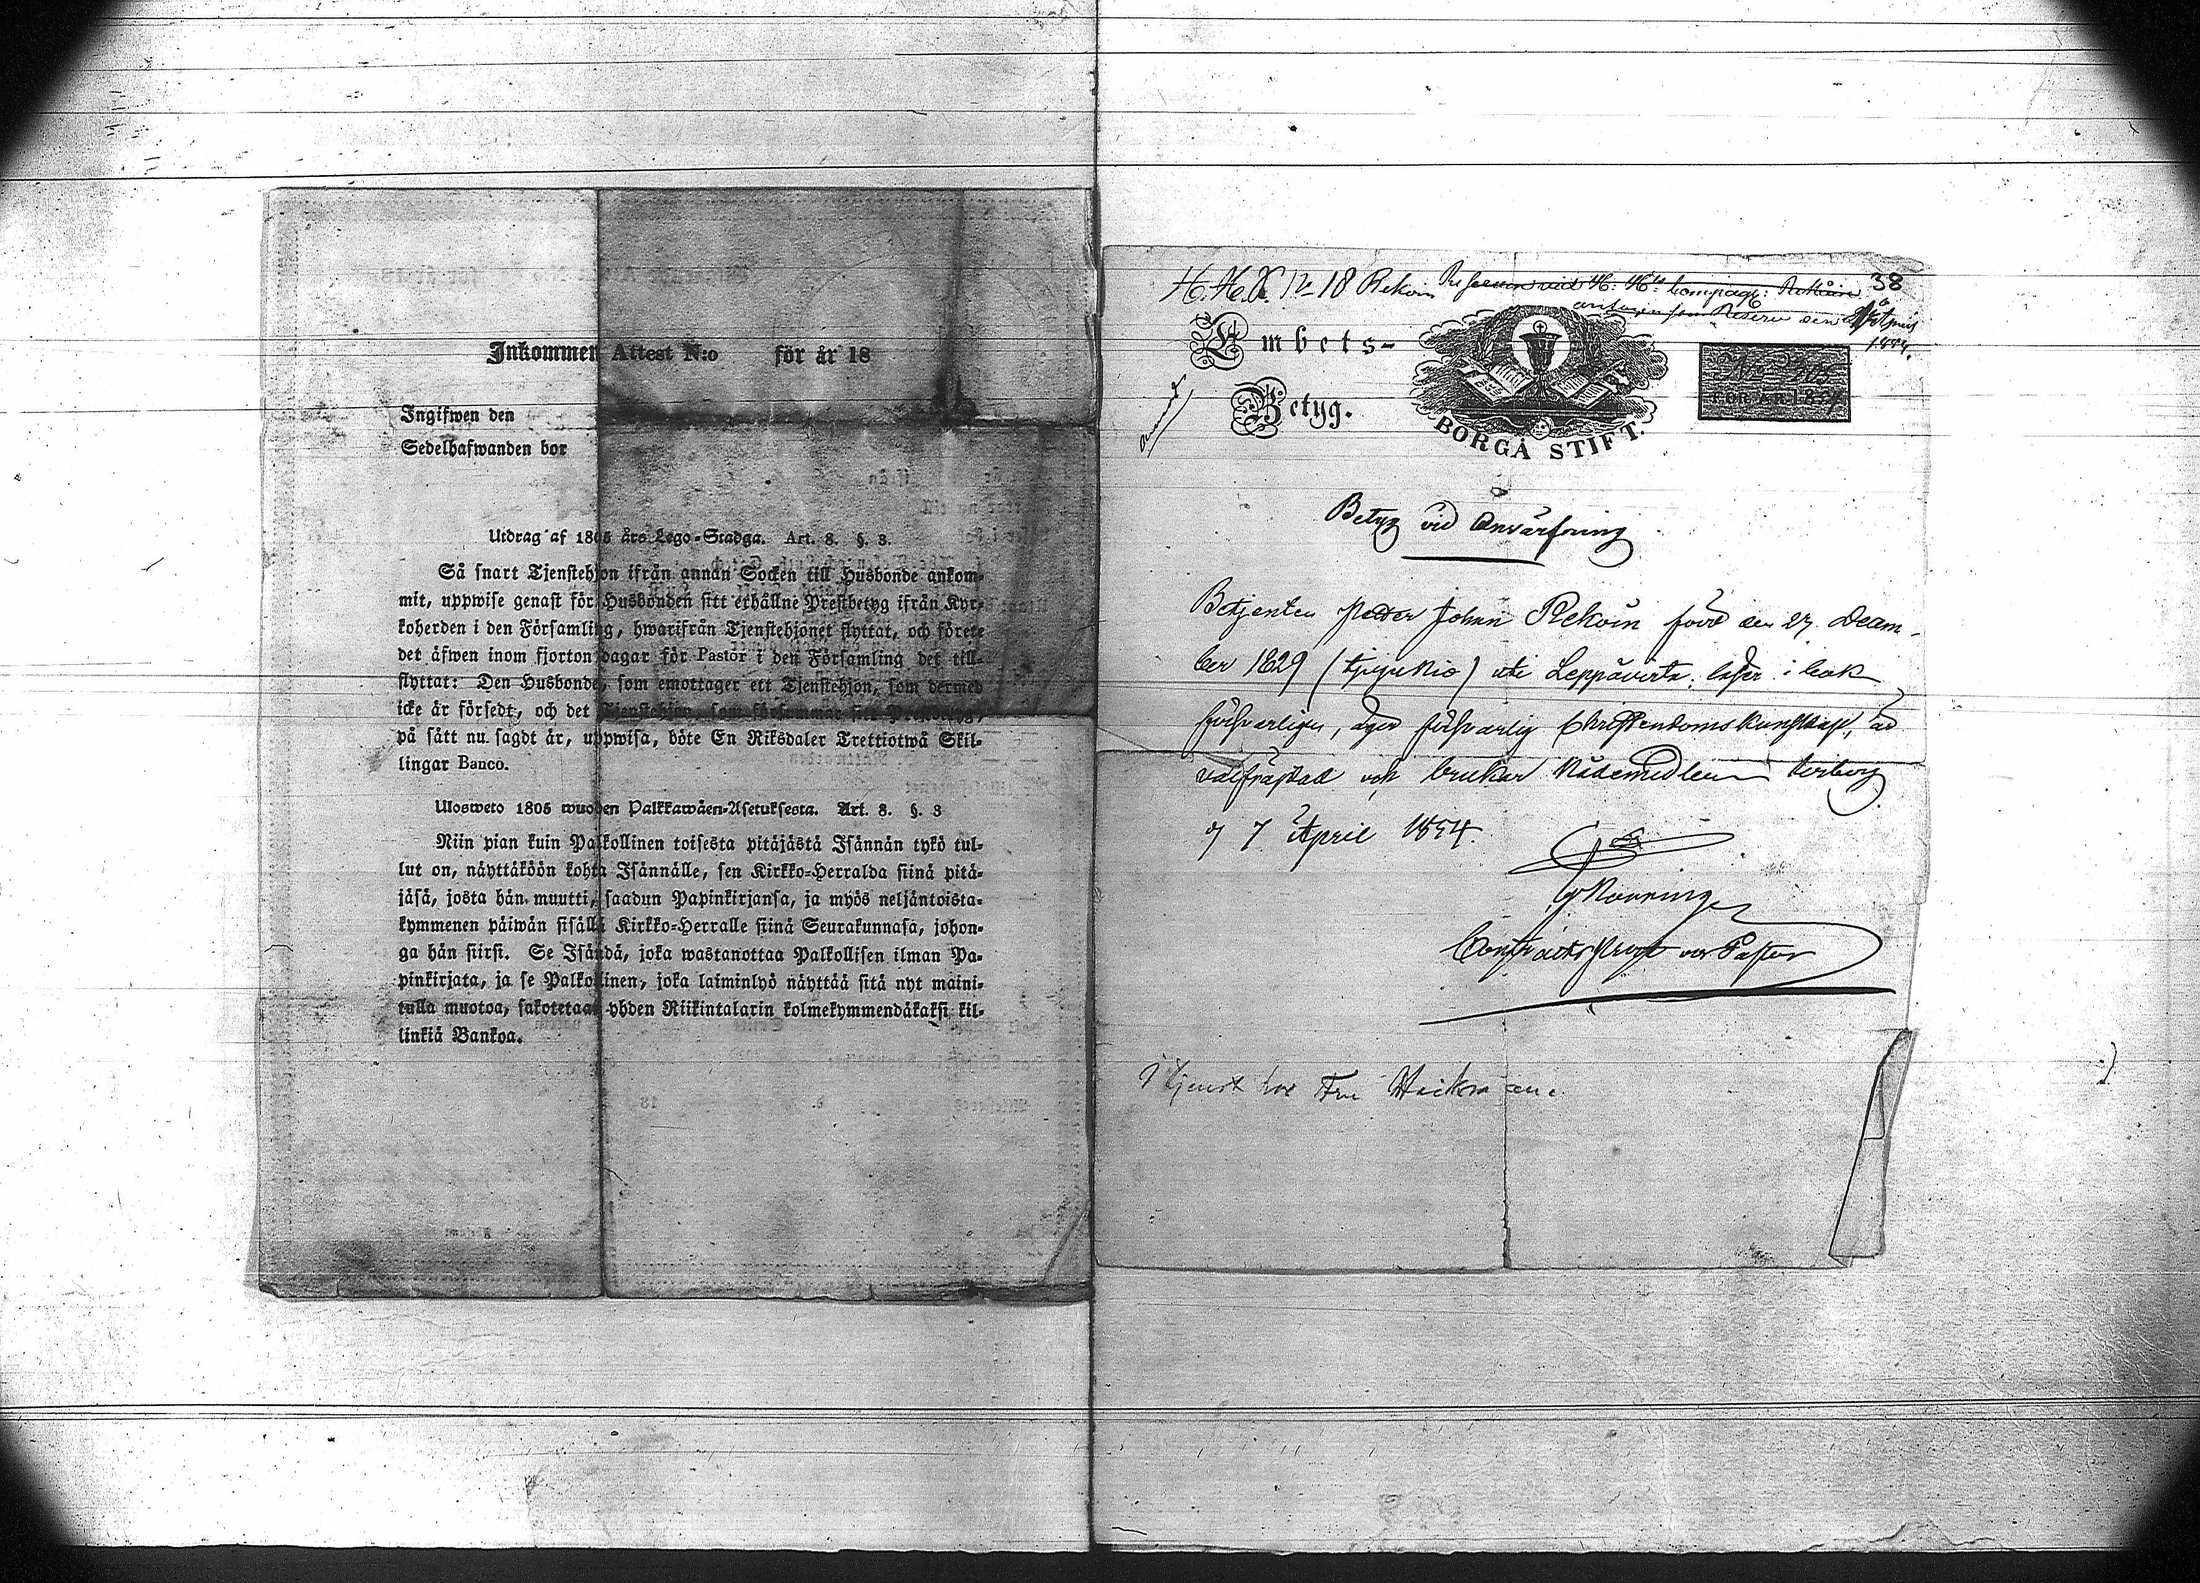 Inkommen Attest N:o för år 18
Ingifwen den
Sedelhafwanden bor
Utdrag af 1805 års Lego-Stadga. Art. 8. §. 3.
Så snart Tjenstehjon ifrån annan Socken till Husbonde ankom-
mit, uppwise genast för Husbonden sitt erhållne Prestbetyg ifrån Kyr-
koherden i den Församling, hwarifrån Tjenstehjonet flyttat, och förete
det äfwen inom fjorton dagar för Pastor i den Församling det till-
flyttat: Den Husbonde, som emottager ett Tjenstehjon, som dermed
icke är försedt, och det Tjenstehjon, som försummar sitt Prestbetyg,
på sätt nu sagdt är, uppwisa, böte En Riksdaler Trettiotwå Skil-
lingar Banco.
Ulosweto 1805 wuoden Palkkawäen-Asetuksesta. Art. 8. §. 3
Niin pian kuin Palkollinen toisesta pitäjästä Isännän tykö tul-
lut on, näyttäköön kohta Isännälle, sen Kirkko-Herralda siinä pitä-
jäsä, josta hän muutti, saadun Papinkirjansa, ja myös neljäntoista-
kymmenen päiwän sisällä Kirkko-Herralle siinä Seurakunnasa, johon-
ga hän siirsi. Se Isändä, joka wastanottaa Palkollisen ilman Pa-
pinkirjata, ja se Palkollinen, joka laiminlyö näyttää sitä nyt maini-
tulla muotoa, sakotetaan yhden Riikintalarin kolmekymmendäkaksi kil-
linkiä Bankoa.
38
18 Rekoin
1854.
Embets-
Betyg.
BORGÅ STIFT.
FÖR ÅR 18
Betyg vid Anvärfning
Betjenten Petter Johan Rekoin född den 27. Decem-
ber 1829 uti Leppävirta, läser i bok
försvarligen, äger försvarlig Christendoms kunskap, är
välfräjdad och brukar Nådemedlen Wiborg
d 7 April 1854.
Contracts Prost och Pastor
I tjenst hos Fru